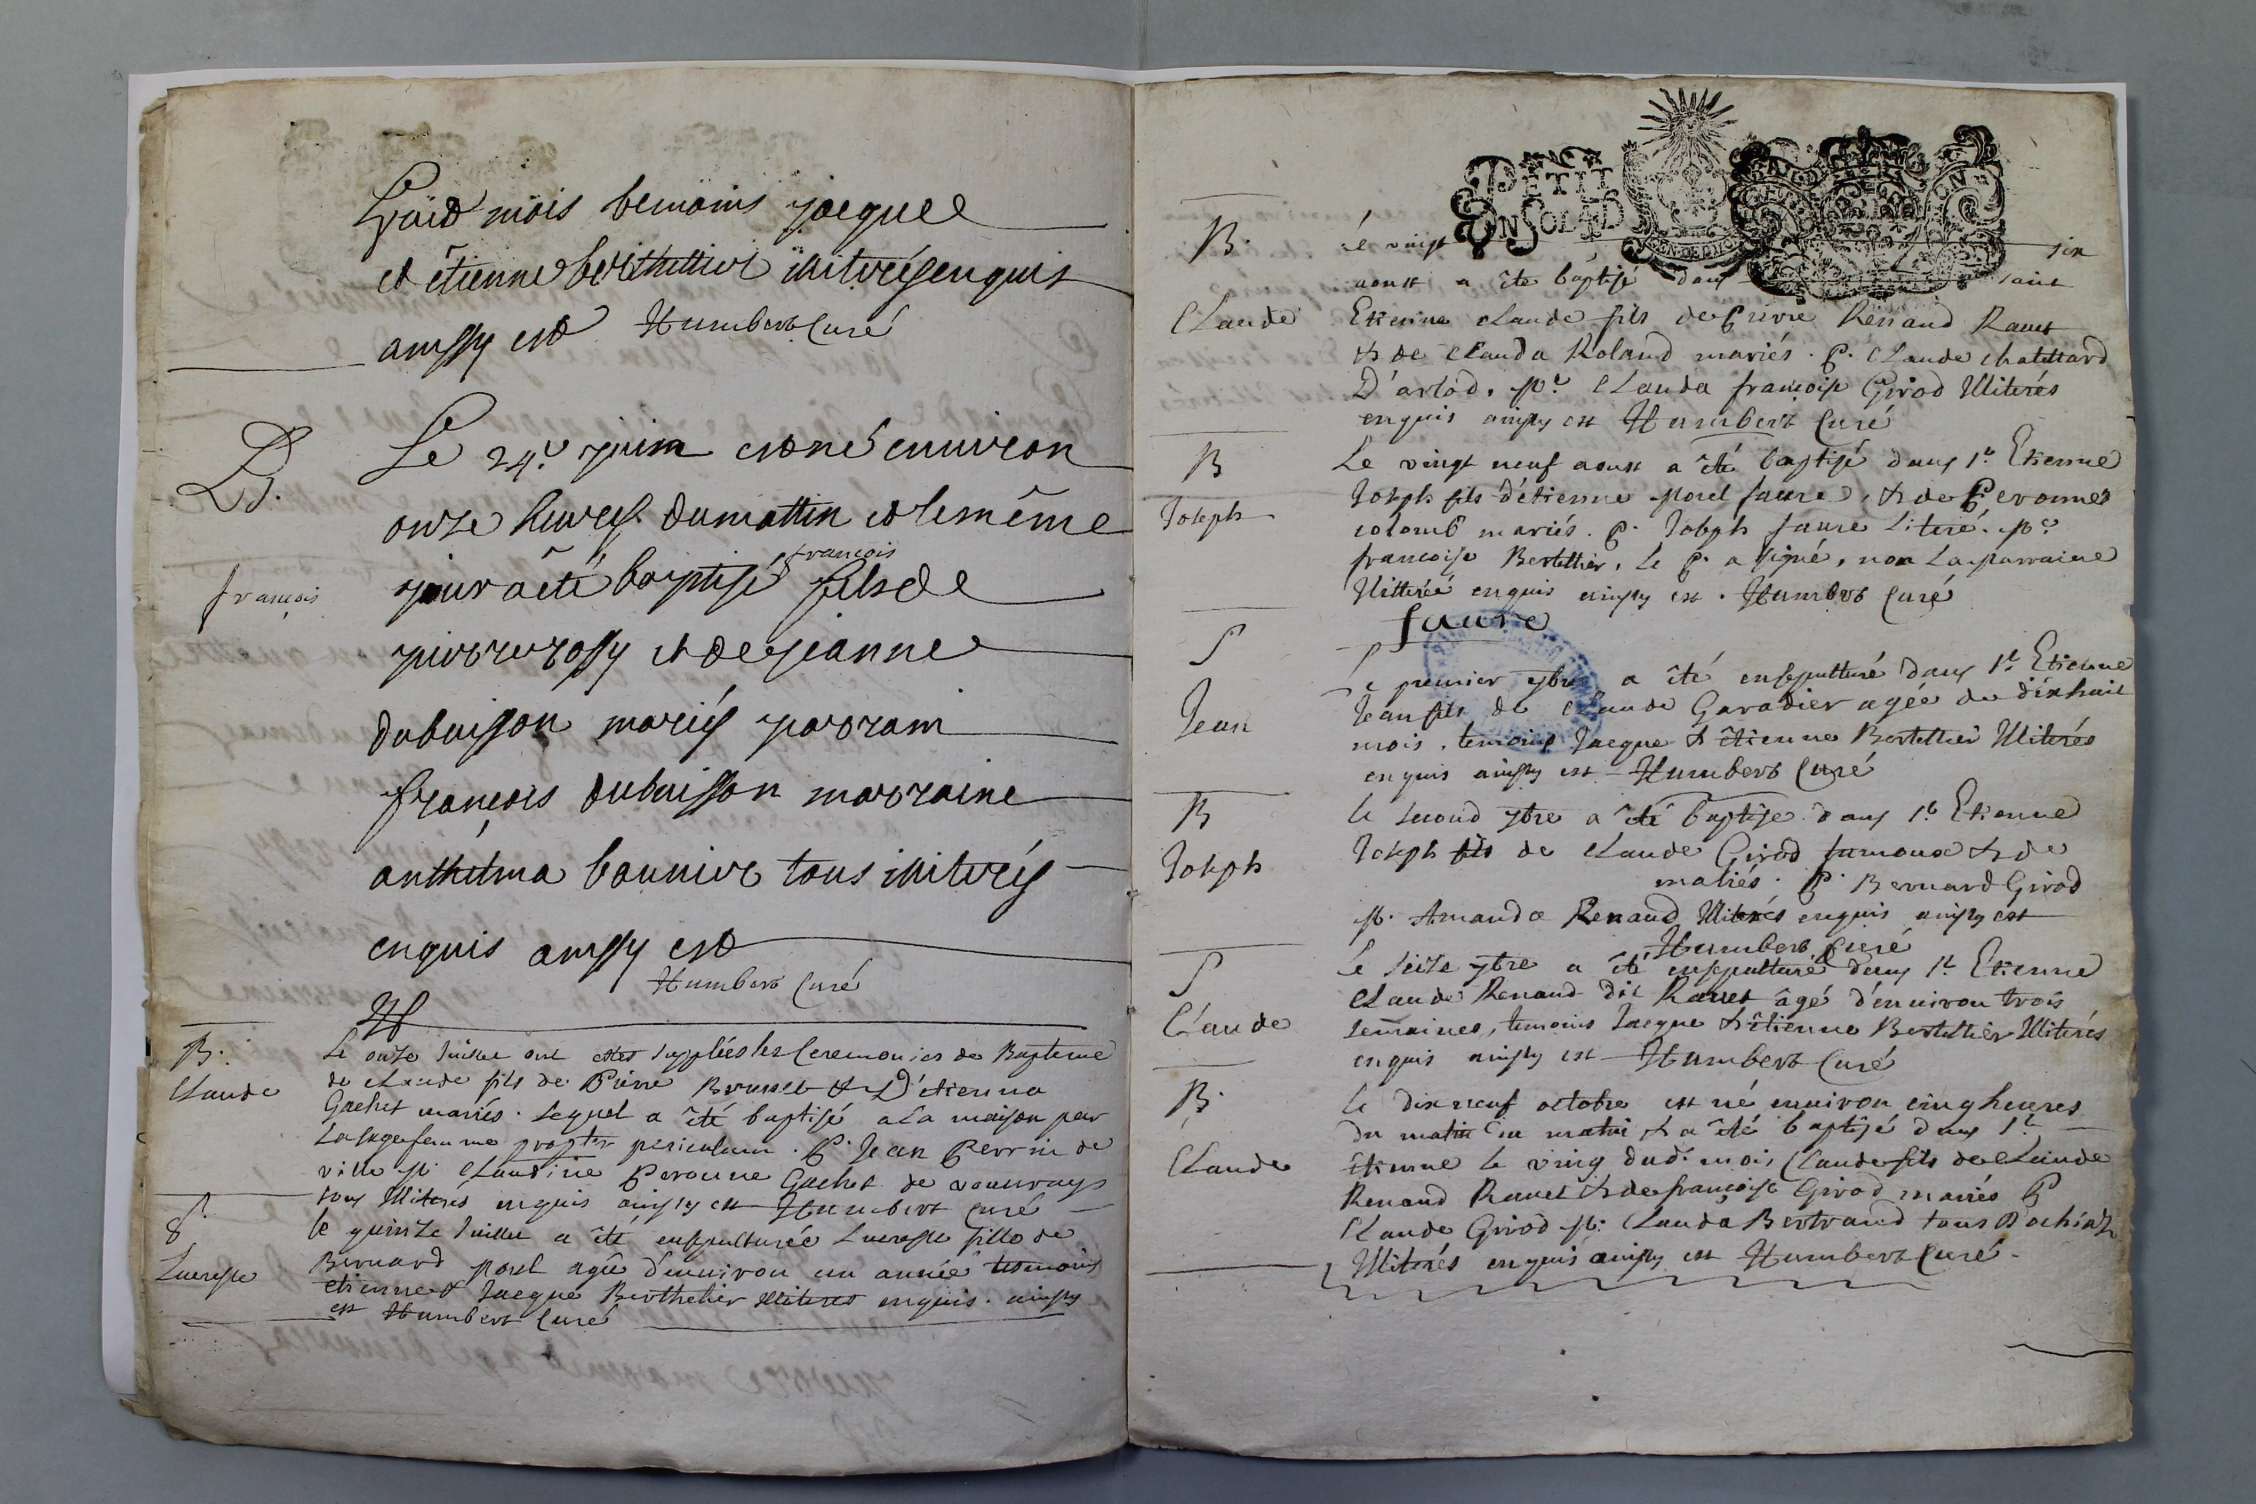 dud mois temoins jacque
et êtienne berthettier illiterés enquis
ainssy est Humbert Curé
B.
françois
Le 24.e juin est né environ
onze heures du mattin et le même
jour a êté baptisé françois fils de
pierre rossy et de jeanne
dubuisson mariés parrain
françois dubuisson marraine
anthelma bounier tous illiterés
enquis ainssy est
Humbert Curé
H
B.
Claude
Le onze Juillet ont estes supplées les Ceremonies de Bapteme
de claude fils de Pierre Brunet & D'étienna
Gachet mariés. lequel a êté baptisé a La maison par
La sage femme propter periculum. P. Jean Perrin de
ville M. Claudine Peronne Gachet de vouvrays
tous illiterés enquis ainssy est Humbert Curé
S.
Lucresse
le quinze Juillet a êté ensepulturée Lucresse fille de
Bernard morel agée d'environ un année temoins
etienne & Jacque Berthetier illiteres enquis. ainssy
est Humbert Curé
PETIT
ON SOL 4 D
B.
Claude
Le vingt six
aoust a ête baptisé dans saint
Etienne claude fils de Pierre Renaud Ravet
& de Clauda Roland mariés. P. Claude chatettard
D'arlod. M.e Clauda françoise Girod illiterés
enquis ainssy est Humbert Curé
B
Joseph
Le vingt neuf aoust a êté baptisé dans S.t Etienne
Joseph fils d'étienne morel faure, & de Peronne
colomb mariés. P. Joseph faure Literé. M.e
francoise Bertettier. Le P. a signé, non La marraine
illitérée enquis ainssy est. Humbert Curé
faure
S
Jean
Le premier 7bre a êté ensepulturé dans S.t Etienne
Jean fils de Claude Garadier agée de dixhuit
mois, temoins Jacque & êtienne Bertettier illiterés
enquis ainssy est Humbert Curé
B
Joseph
le second 7bre a êté baptise dans S.t Etienne
Joseph fils de Claude Girod fumoux & de
mariés. P. Bernard Girod
M. Amanda Renaud illiterés enquis ainssy est
Humbert Curé
S
Claude
Le seize 7bre a êté ensepulturé dans S.t Etienne
Claude Renaud dit Ravet âgé d'environ trois
semaines, temoins Jacque & êtienne Bertettier illiterés
enquis ainssy est Humbert Curé
B.
Claude
Le dix neuf octobre est né environ cinq heures
du matin du matin & a êté baptisé dans S.t
êtienne le ving dud. mois Claude fils de Claude
Renaud Ravet & de francoise Girod mariés P
Claude Girod M. Clauda Bertrand tous D'ochiaz
illiterés enquis ainssy est Humbert Curé.